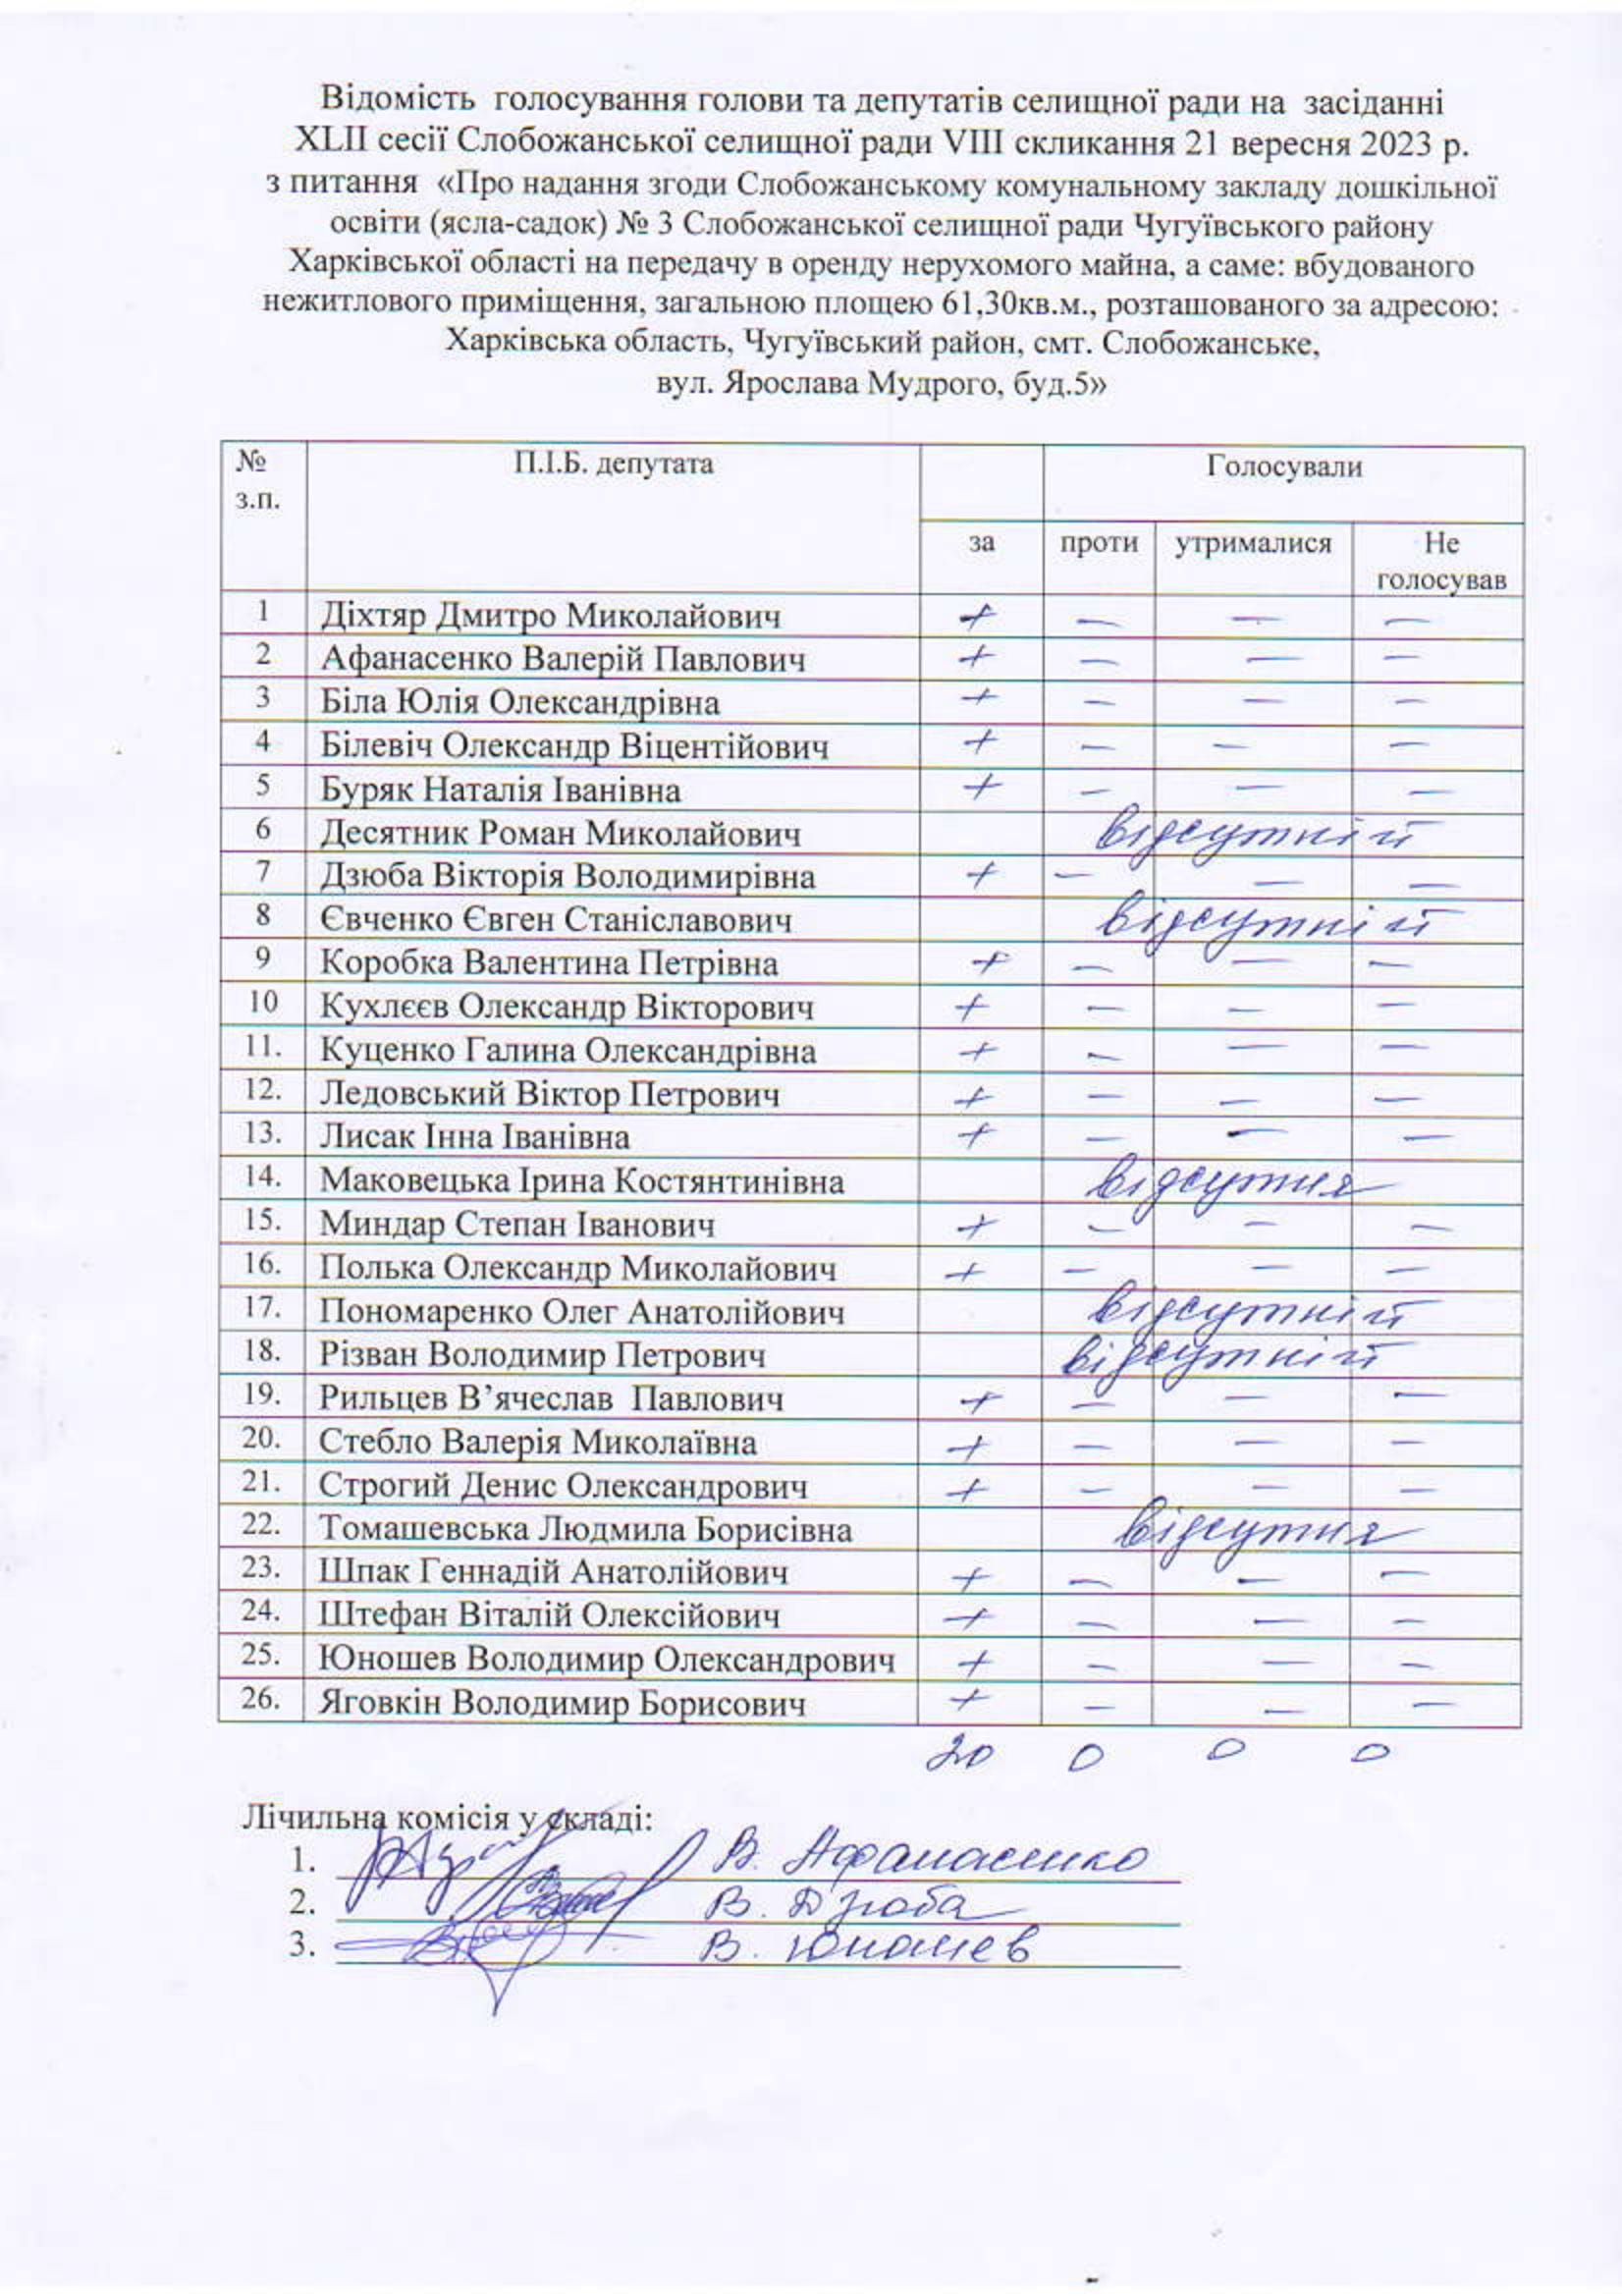 Відомість голосування голови та депутатів селищної ради на засіданні
XLII сесії Слобожанської селищної ради VIII скликання 21 вересня 2023 р.
з питання «Про надання згоди Слобожанському комунальному закладу дошкільної
освіти (ясла-садок) № 3 Слобожанської селищної ради Чугуївського району
Харківської області на передачу в оренду нерухомого майна, а саме: вбудованого
нежитлового приміщення, загальною площею 61,30кв.м., розташованого за адресою:
Харківська область, Чугуївський район, смт. Слобожанське,
вул. Ярослава Мудрого, буд.5»
№ з.п. П.І.Б. депутата Голосували
за проти утрималися Не голосував
1 Діхтяр Дмитро Миколайович + — — —
2 Афанасенко Валерій Павлович + — — —
3 Біла Юлія Олександрівна + — — —
4 Білевіч Олександр Віцентійович + — — —
5 Буряк Наталія Іванівна + — — —
6 Десятник Роман Миколайович відсутній
7 Дзюба Вікторія Володимирівна + — — —
8 Євченко Євген Станіславович відсутній
9 Коробка Валентина Петрівна + — — —
10 Кухлєєв Олександр Вікторович + — — —
11. Куценко Галина Олександрівна + — — —
12. Ледовський Віктор Петрович + — — —
13. Лисак Інна Іванівна + — — —
14. Маковецька Ірина Костянтинівна відсутня
15. Миндар Степан Іванович + — — —
16. Полька Олександр Миколайович + — — —
17. Пономаренко Олег Анатолійович відсутній
18. Різван Володимир Петрович відсутній
19. Рильцев В’ячеслав Павлович + — — —
20. Стебло Валерія Миколаївна + — — —
21. Строгий Денис Олександрович + — — —
22. Томашевська Людмила Борисівна відсутня
23. Шпак Геннадій Анатолійович + — — —
24. Штефан Віталій Олексійович + — — —
25. Юношев Володимир Олександрович + — — —
26. Яговкін Володимир Борисович + — — —
20 0 0 0
Лічильна комісія у складі:
1. В. Афанасенко
2. В. Дзюба
3. В. Юношев